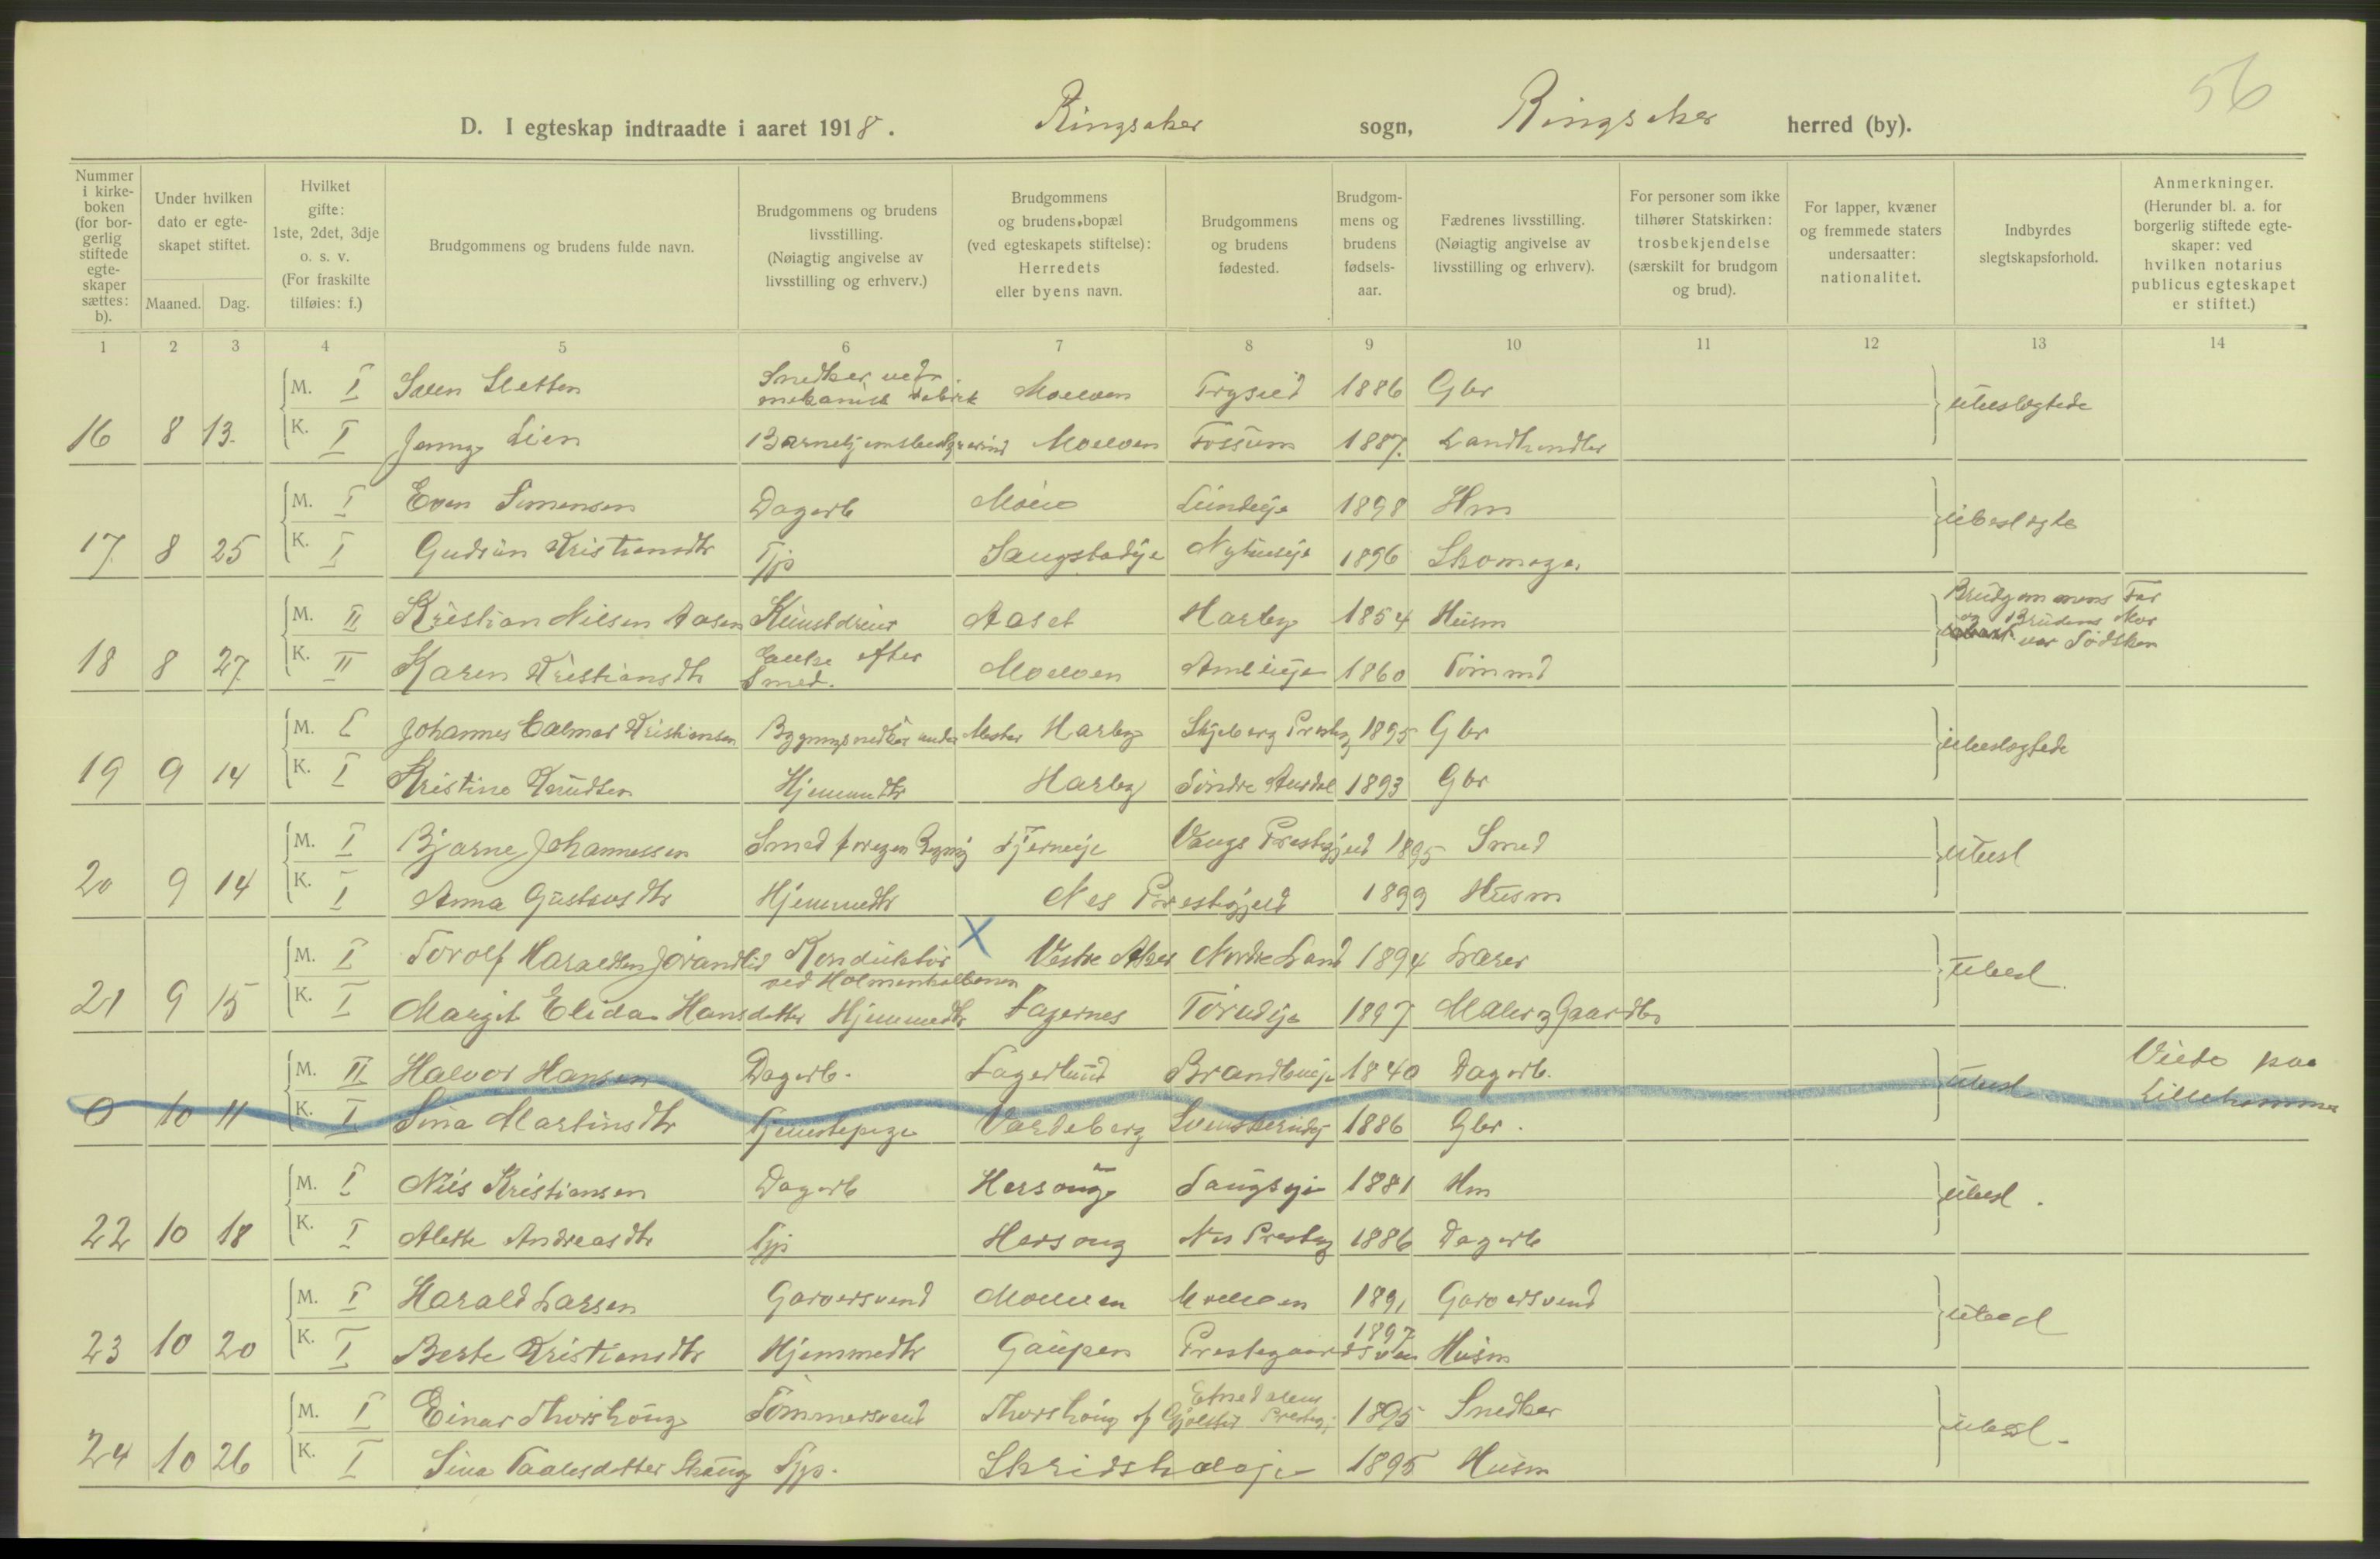 56
D. I egteskap indtraadte i aaret 1918. Ringsaker sogn, Ringsaker herred (by).
Nummer i kirkeboken (for borgerlig stiftede egteskaper sættes: b).
Under hvilken dato er egteskapet stiftet.
Maaned. Dag.
Hvilket gifte: 1ste, 2det, 3dje o. s. v. (For fraskilte tilføies: f.)
Brudgommens og brudens fulde navn.
Brudgommens og brudens livsstilling. (Nøiagtig angivelse av livsstilling og erhverv.)
Brudgommens og brudens bopæl (ved egteskapets stiftelse): Herredets eller byens navn.
Brudgommens og brudens fødested.
Brudgommens og brudens fødselsaar.
Fædrenes livsstilling. (Nøiagtig angivelse av livsstilling og erhverv).
For personer som ikke tilhører Statskirken: trosbekjendelse (særskilt for brudgom og brud).
For lapper, kvæner og fremmede staters undersaatter: nationalitet.
Indbyrdes slegtskapsforhold.
Anmerkninger. (Herunder bl. a. for borgerlig stiftede egteskaper: ved hvilken notarius publicus egteskapet er stiftet.)
1 2 3 4 5 6 7 8 9 10 11 12 13 14
M. I Sven Sletten Snedker ved mekanisk Fabrik Moelven Trysild 1886 Gbr
16 8 13. K. I Jenny Lien Moelven Fossum 1887. Landhandler
ubeslegtede
M. I Even Simensen Dagarb Moen Lundeje 1898 Hm
17 8 25 K. I Gudrun Kristiansdtr Tjp Saugstadeje Nyhuseje 1896 Skomager
ubeslegte
M. II Kristian Nilsen Aasen Kunstdreier Aaset Harby 1854 Husm
18 8 27 K. II Karen Kristiansdtr Enke efter Smed. Moelven 1860 Tømmd
Brudgommens Far og Brudens Mor var Sødsken
M. I Johannes Halmar Kristiansen Bygningssnedker under Mester Harby Skjeberg Prestg 1895 Gbr
19 9 14 K. I Kristine Knudsen Hjemmedtr Harby Søndre Aurdal 1893 Gbr
ubeslegtede
M. I Bjarne Johannessen Smed for egen Regning Tjerneje Vangs Prestegjeld 1895 Smed
20 9 14 K. I Anna Gustavsdtr Hjemmedtr Nes Prestegjeld 1899 Husm
ubesl
M. I Torolf Haraldsen Jorandlid Konduktør ved Holmenkolbanen X Vestre Aker Nordre Land 1894 Lærer
21 9 15 K. I Margit Elida Hansdatter Hjemmedtr Fagernes 1897 Maler og Gaardbr
ubesl.
M. II Halvor Hansen Dagarb. Fagerlund 1840 Dagarb.
0 10 11 K. I Sina Martinsdtr Tjenestepige Vardeberg 1886 Gbr.
ubesl. Viede paa Lillehammer
M. I Nils Kristiansen Dagarb Hersoug Saugseje 1881 Hm
22 10 18 K. I Alette Andreasdtr Tjp Hersoug Nes Prestg 1886 Dagarb
ubesl.
M. I Harald Larsen Garversvend Moelven Moelven 1891 Garversvend
23 10 20 K. I Berte Kristiansdtr Hjemmedtr Gaupen 1897 Husm
ubesl
M. I Einar Thorshoug Tømmersvend Thorshoug af Etnedalens Prestegj 1895 Snedker
24 10 26 K. I Sina Paalsdatter Skaug Tjp. 1895 Husm
ubesl.